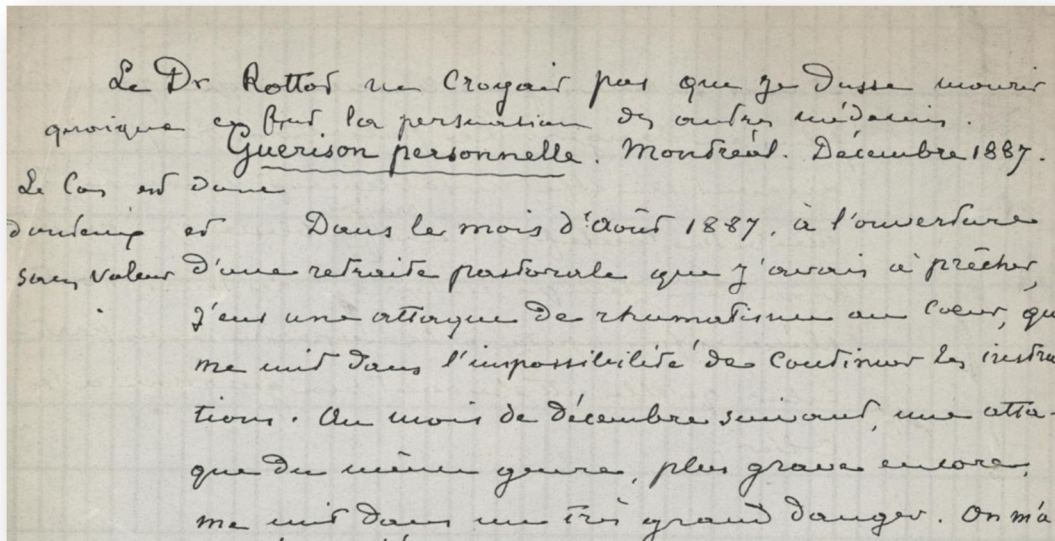 Le Dr Rottot ne croyait pas que je dusse mourir
quoique ce fut la persuasion des autres médecins.
Guérison personnelle. Montréal. Décembre 1887.
Le Cas est donc
douteux et
sans valeur
Dans le mois d'Août 1887, à l'ouverture
d'une retraite pastorale que j'avais à prêcher,
j'eus une attaque de rhumatisme au coeur, qu
me mit dans l'impossibilité de continuer les instru
tions. Au mois de décembre suivant, une atta-
que du même genre, plus grave encore,
me mit dans un très grand danger. On m'a